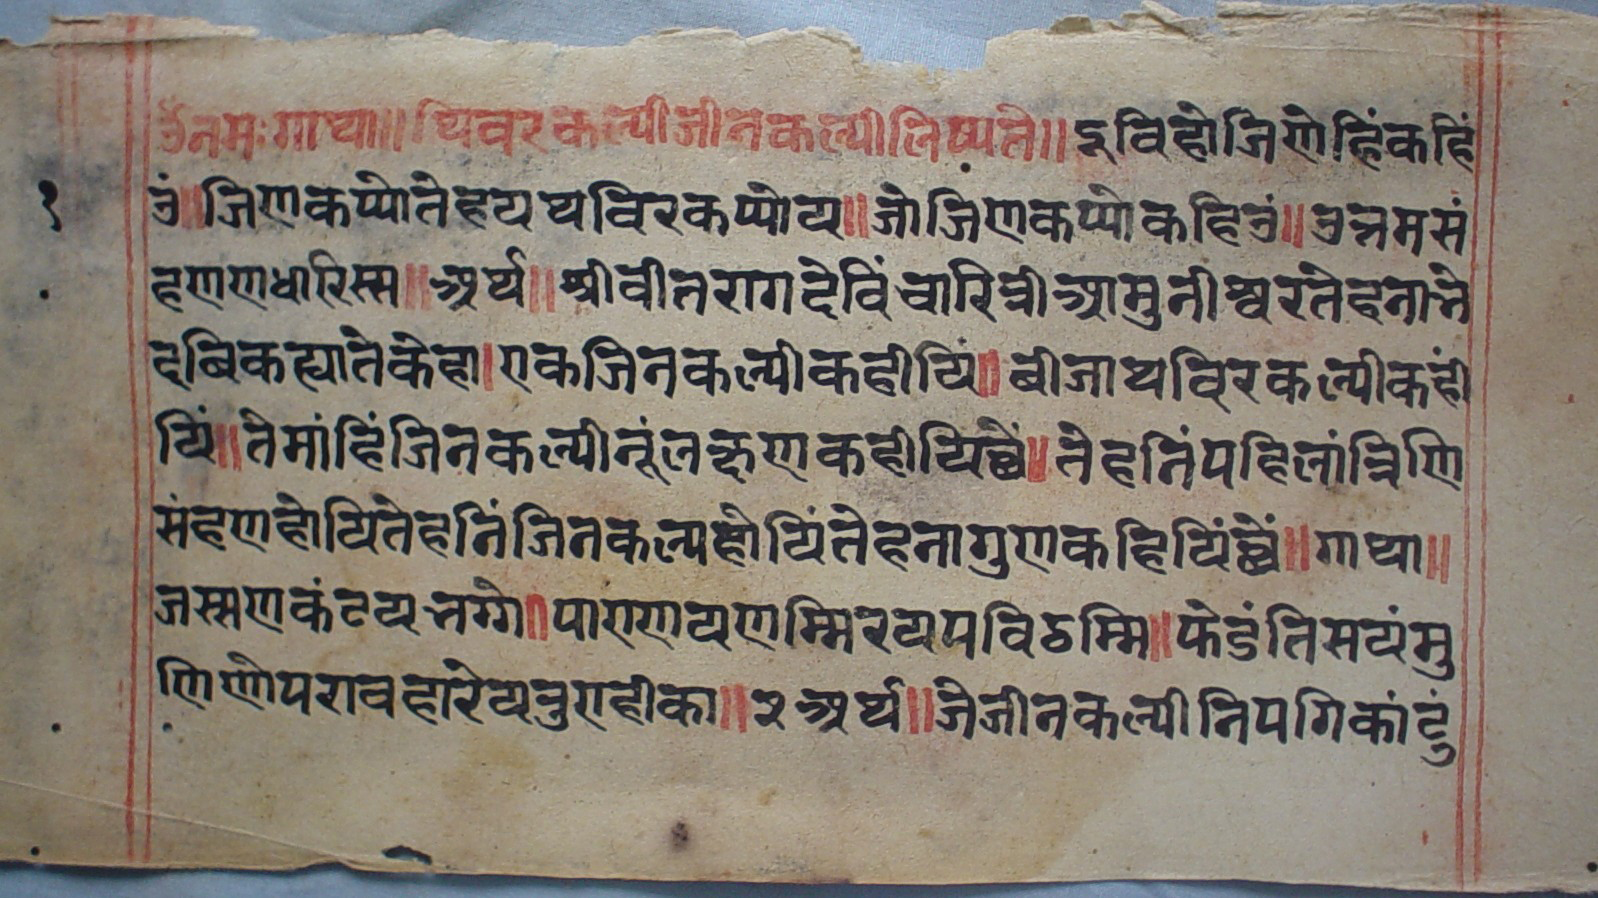 ॐनमःगाथा॥ थिवरकल्पीजीनकल्पीलिष्यते॥ दुविहोजिणेहिंकहि
उं॥जिणकप्पोतेहयथविरकप्पोय॥जोजिणकप्पोकहिउं॥उत्तमसं
हणणधारिस्स॥अर्थ॥श्रीवीतरागदेविंचारित्रीआमुनीश्वरतेहनाने
दबिकह्यातेकेहा।एकजिनकल्पीकहीयिं॥बीजाथविरकल्पीकही
यिं॥तेमांहिंजिनकल्पीनूंलक्षणकहीयिछैं॥तेहनिंपहिलांत्रिणि
संहणहोयितेहनिंजिनकल्पहोयिंतेहनागुणकहियिंछैं॥गाथा॥
जस्सणकंटयनग्गे॥पाएणयणम्मिरयपविठम्मि॥फेडंतिसयंमु
णिणोपरावहारेयनुएहीका॥२अर्थ॥जेजीनकल्पीनिपगिकांटुं
१